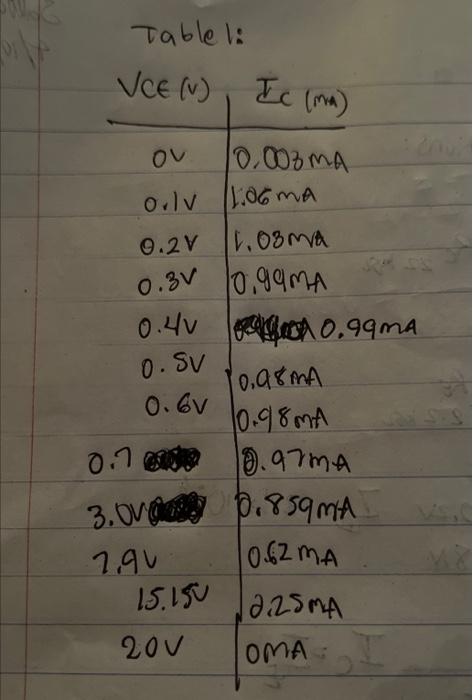 Table 1:
VCE (V) IC (mA)
0V 0.003mA
0.1V 1.06mA
0.2V 1.03mA
0.3V 0.99mA
0.4V 0.99mA
0.5V 0.98mA
0.6V 0.98mA
0.7 0.97mA
3.0V 0.859mA
7.9V 0.62mA
15.15V 0.25mA
20V 0mA